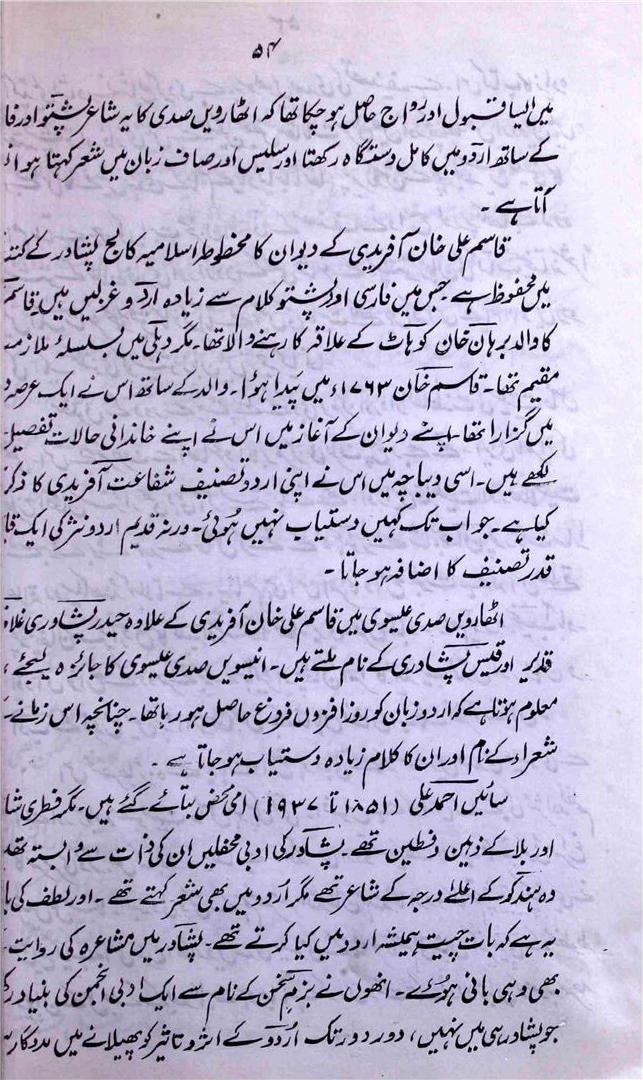 ۵۴
میں ایسا قبول اور رواج حاصل ہو چکا تھا کہ اٹھارویں صدی کا یہ شاعر پشتو اور فا
کے ساتھ اردو میں کامل دستگاہ رکھتا اور سلیس اور صاف زبان میں شعر کہتا ہوا
آتا ہے ۔
قاسم علی خان آفریدی کے دیوان کا مخطوطہ اسلامیہ کالج پشاور کے کتب
میں محفوظ ہے جس میں فارسی اور پشتو کلام سے زیادہ اردو غزلیں ہیں قاسم
کا والد برہان خان کوہاٹ کے علاقہ کا رہنے والا تھا۔ مگر دہلی میں بسلسلۂ ملازمت
مقیم تھا۔ قاسم خان ۱۷۶۳ء میں پیدا ہوا۔ والد کے ساتھ اس نے ایک عرصہ د
میں گزارا تھا۔ اپنے دیوان کے آغاز میں اس نے اپنے خاندانی حالات تفصیل
لکھے ہیں۔ اسی دیباچہ میں اس نے اپنی اردو تصنیف شفاعت آفریدی کا ذکر
کیا ہے۔ جو اب تک کہیں دستیاب نہیں ہوئی۔ ورنہ قدیم اردو نثر کی ایک قا
قدر تصنیف کا اضافہ ہو جاتا ۔
اٹھارویں صدی عیسوی میں قاسم علی خان آفریدی کے علاوہ حیدر پشاوری غلام
قدیر اور قیس پشاوری کے نام ملتے ہیں۔ انیسویں صدی عیسوی کا جائزہ لیجئے ،
معلوم ہوتا ہے کہ اردو زبان کو روز افزوں فروغ حاصل ہو رہا تھا۔ چنانچہ اس زمانے
شعراء کے نام اور ان کا کلام زیادہ دستیاب ہو جاتا ہے ۔
سائیں احمد علی (۱۸۵۱ تا ۱۹۳۷) امی محض بتائے گئے ہیں۔ مگر فطری شا
اور بلا کے ذہین و فطین تھے۔ پشاور کی ادبی محفلیں ان کی ذات سے وابستہ تھیں
وہ ہندکو کے اعلےٰ درجہ کے شاعر تھے مگر اردو میں بھی شعر کہتے تھے ۔ اور لطف کی با
یہ ہے کہ بات چیت ہمیشہ اردو میں کیا کرتے تھے۔ پشاور میں مشاعرہ کی روایت
بھی وہی بانی ہوئے۔ انھوں نے بزم سخن کے نام سے ایک ادبی انجمن کی بنیاد رکھ
جو پشاور ہی میں نہیں، دور دور تک اردو کے اثر و تاثیر کو پھیلانے میں مددگار